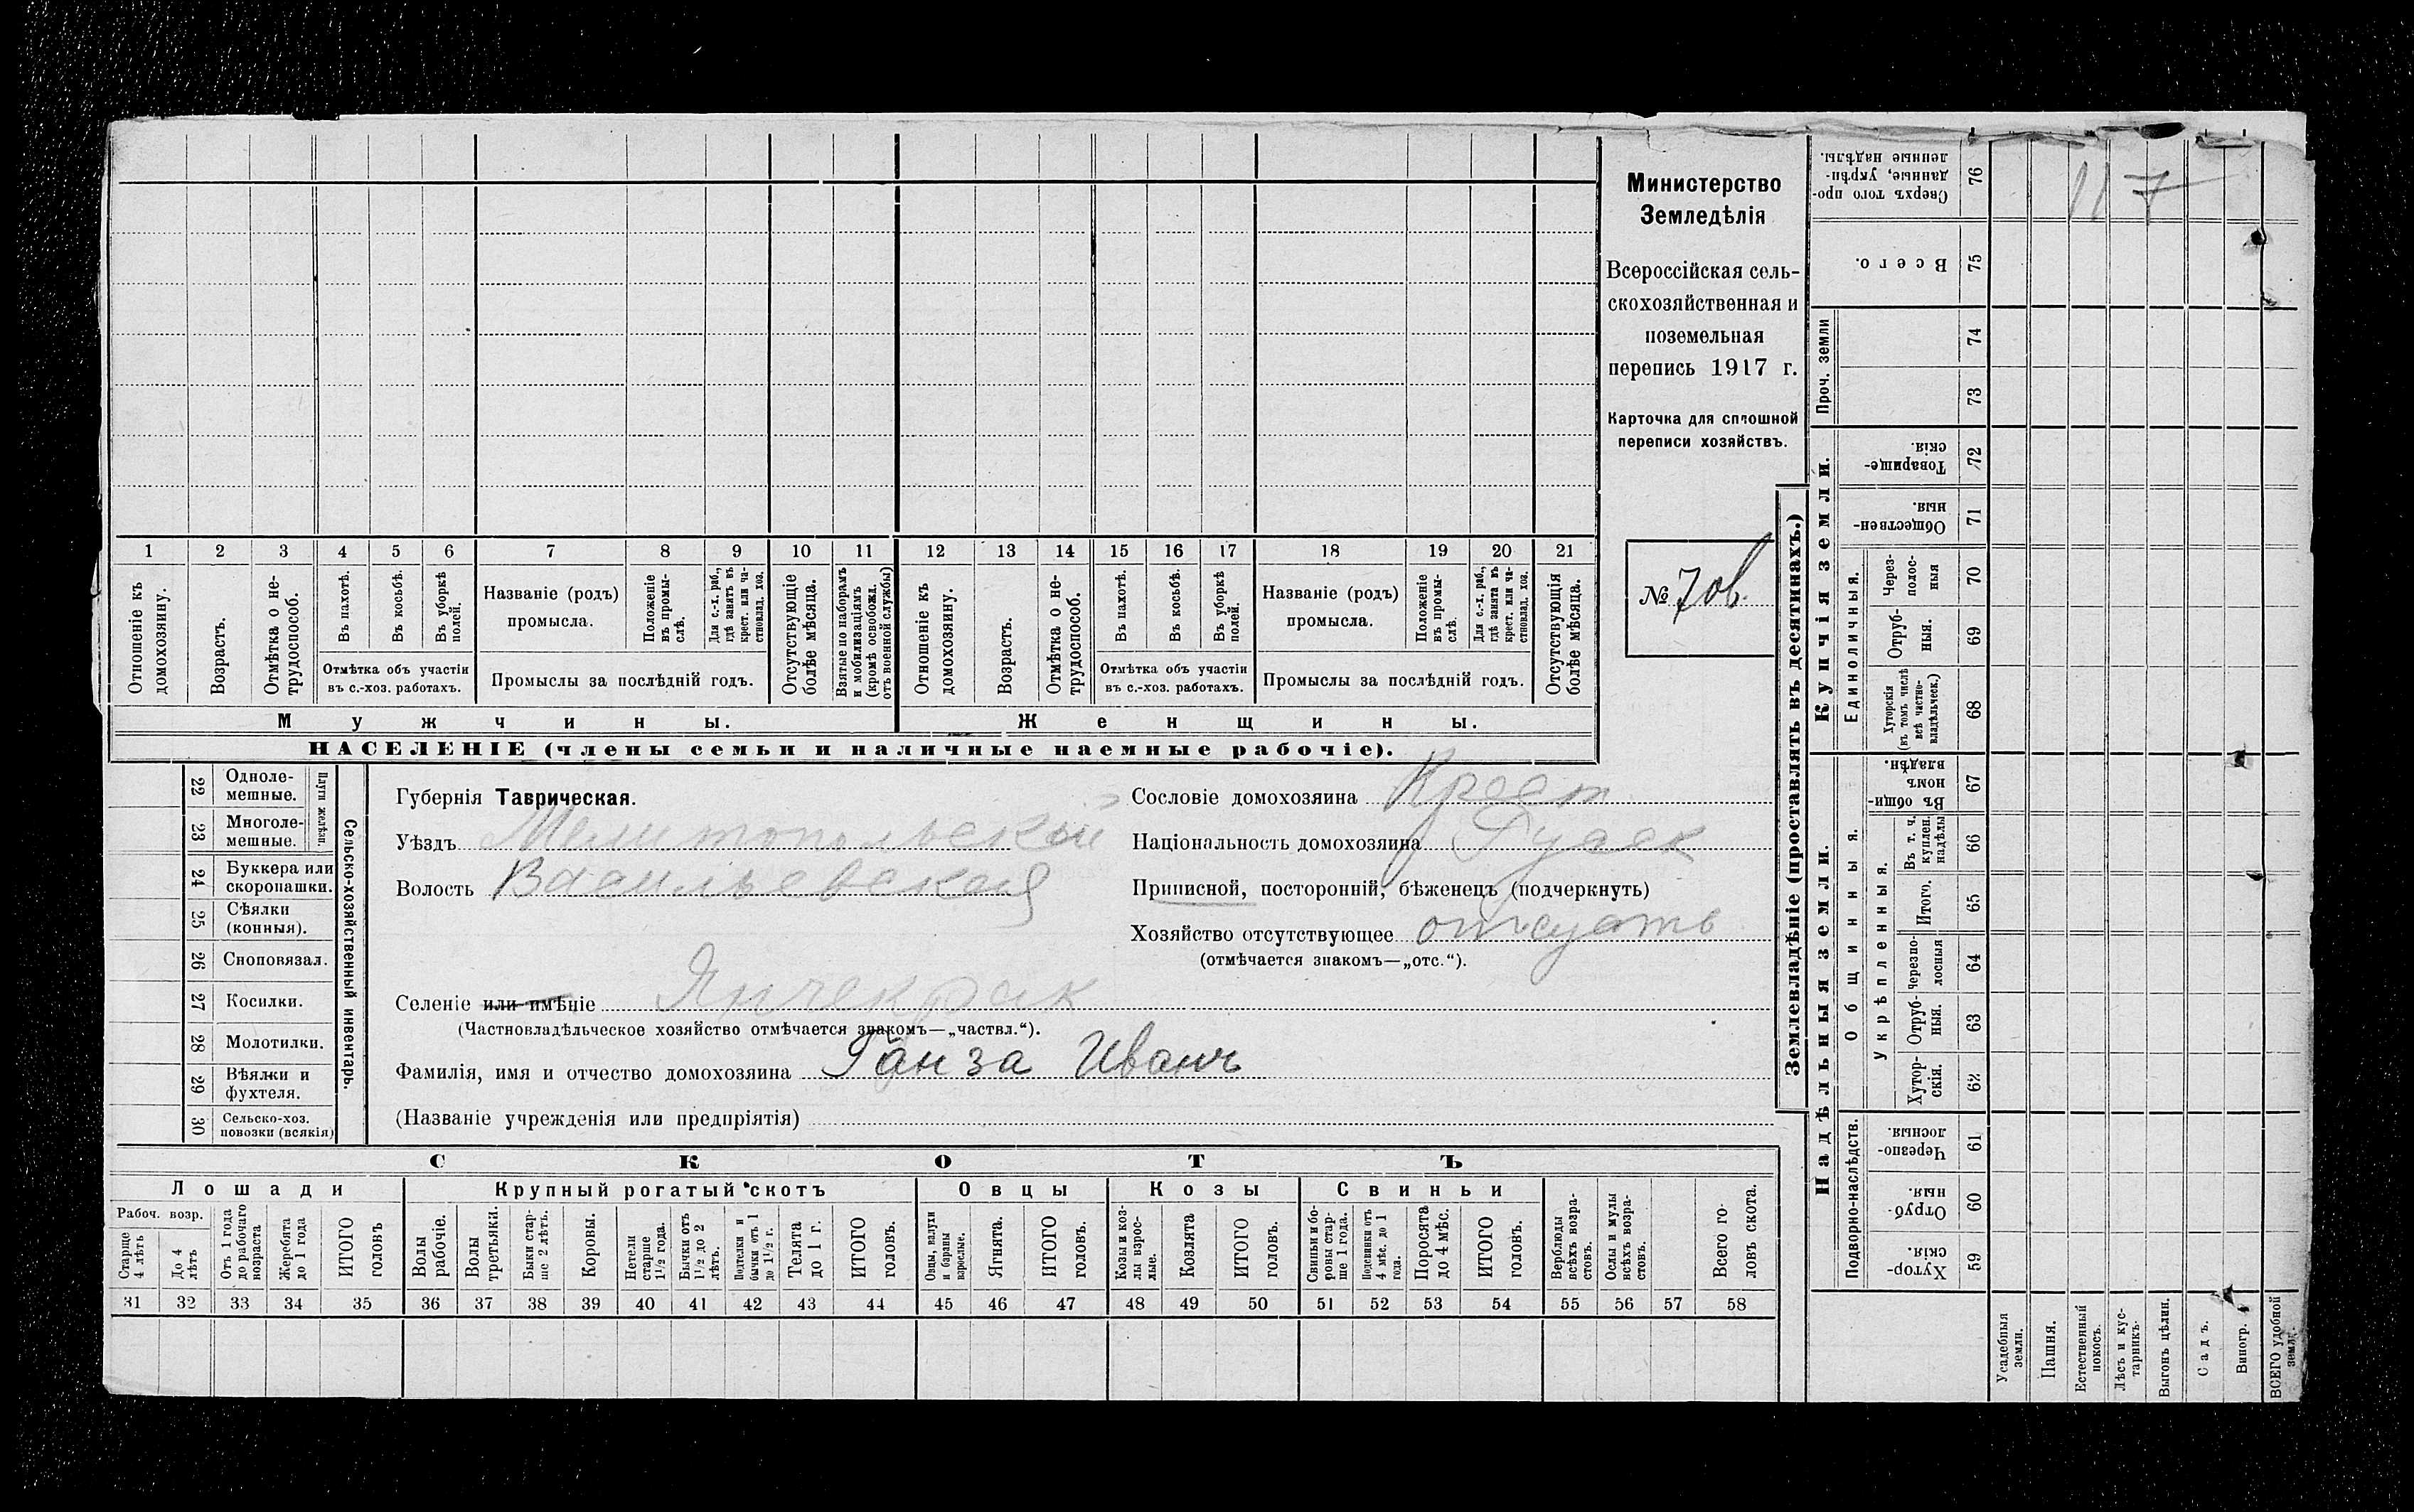 Министерство
Земледѣлія
Всероссійская сель-
скохозяйственная и
поземельная
перепись 1917 г.
Карточка для сплошной
переписи хозяйствъ.
№ 706.
1 2 3 4 5 6 7 8 9 10 11 12 13 14 15 16 17 18 19 20 21
Отношеніе къ домохозяину.
Возрастъ.
Отмѣтка о не-трудоспособ.
Въ пахотѣ.
Въ косьбѣ.
Въ уборкѣ полей.
Отмѣтка объ участіи
въ с.-хоз. работахъ.
Названіе (родъ)
промысла.
Положеніе въ промы-слѣ.
Для с.-х. раб., гдѣ занятъ въ крест. или ча-стновлад. хоз.
Промыслы за послѣдній годъ.
Отсутствующіе болѣе мѣсяца.
Взятые по наборамъ и мобилизаціямъ (кромѣ освобожд. отъ военной службы)
Отношеніе къ домохозяину.
Возрастъ.
Отмѣтка о не-трудоспособ.
Въ пахотѣ.
Въ косьбѣ.
Въ уборкѣ полей.
Отмѣтка объ участіи
въ с.-хоз. работахъ.
Названіе (родъ)
промысла.
Положеніе въ промы-слѣ.
Для с.-х. раб., гдѣ занята въ крест. или ча-стновлад. хоз.
Промыслы за послѣдній годъ.
Отсутствующія болѣе мѣсяца.
Мужчины.
Женщины.
НАСЕЛЕНІЕ (члены семьи и наличные наемные рабочіе).
22 Одноле-мешные.
23 Многоле-мешные.
Плуги желѣзн.
24 Буккера или скоропашки.
25 Сѣялки (конныя).
26 Сноповязал.
27 Косилки.
28 Молотилки.
29 Вѣялки и фухтеля.
30 Сельско-хоз. повозки (всякія)
Сельско-хозяйственный инвентарь.
Губернія Таврическая.
Уѣздъ Мелитопольский
Волость Васильевская
Селеніе или имѣніе Янчекрак
(Частновладѣльческое хозяйство отмѣчается знакомъ—„частвл.“).
Фамилія, имя и отчество домохозяина Ганза Иванъ
(Названіе учрежденія или предпріятія)
Сословіе домохозяина Крест
Національность домохозяина Русск
Приписной, посторонній, бѣженецъ (подчеркнуть)
Хозяйство отсутствующее отсуть
(отмѣчается знакомъ—„отс.“).
СКОТЪ
Лошади
Крупный рогатый скотъ
Овцы
Козы
Свиньи
Рабоч. возр.
Старше 4 лѣтъ
До 4 лѣтъ
Отъ 1 года до рабочаго возраста
Жеребята до 1 года
ИТОГО головъ
Волы рабочіе.
Волы третьяки.
Быки стар-ше 2 лѣтъ.
Коровы.
Нетели старше 1½ года.
Бычки отъ 1½ до 2 лѣтъ.
Подтелки и бычки отъ 1 до 1½ г.
Телята до 1 г.
ИТОГО головъ.
Овцы, валухи и бараны взрослые.
Ягнята.
ИТОГО головъ.
Козы и коз-лы взрос-лые.
Козлята
ИТОГО головъ.
Свиньи и бо-ровы стар-ше 1 года.
Подсвинки отъ 4 мѣс. до 1 года.
Поросята до 4 мѣс.
ИТОГО головъ.
Верблюды всѣхъ возра-стовъ.
Ослы и мулы всѣхъ возра-стовъ.
Всего го-ловъ скота.
31 32 33 34 35 36 37 38 39 40 41 42 43 44 45 46 47 48 49 50 51 52 53 54 55 56 57 58
Землевладѣніе (проставлять въ десятинахъ.)
117
Сверхъ того про-данные, укрѣп-ленные надѣлы. 76
Всего. 75
Проч. земли
74
73
Купчія земли.
Товарище-скія. 72
Обществен-ныя. 71
Единоличныя.
Через-полос-ныя 70
Отруб-ныя. 69
Хуторскія (въ томъ числѣ всѣ частно-владѣльческ.) 68
Надѣльныя земли.
Общинныя.
Въ общи-номъ владѣн. 67
Укрѣпленныя.
Въ т. ч. куплен. надѣлы 66
Итого. 65
Черезпо-лосныя 64
Отруб-ныя. 63
Хутор-скія. 62
Подворно-наслѣдств.
Черезпо-лосныя. 61
Отруб-ныя. 60
Хутор-скія. 59
Усадебныя земли.
Пашня.
Естественный покосъ.
Лѣсъ и кус-тарникъ.
Выгонъ цѣлин.
Садъ.
Виногр.
ВСЕГО удобной земли.